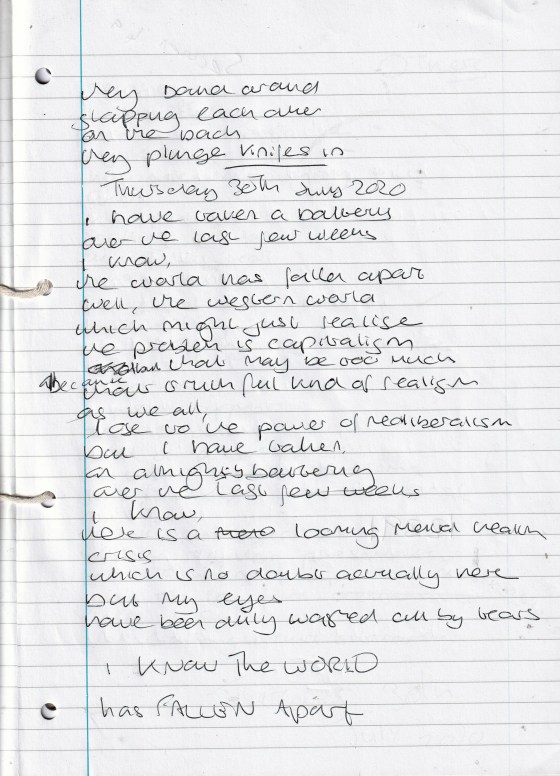 they around
slapping each other
on the back
they plunge knifes in
Thursday 30th July 2020
I have taken a battering
over the last few weeks
I know,
the world has fallen apart
well, the western world
which might just realise
the problem is capitalism
that may be too much
because kind of realism
as we all,
lose to the power of neoliberalism
but I have taken,
an almighty battering
over the last few weeks
I know,
there is a looming mental health
crisis
which is no doubt actually here
but my eyes
have been duly washed out by tears
I KNOW THE WORLD
has FALLEN Apart